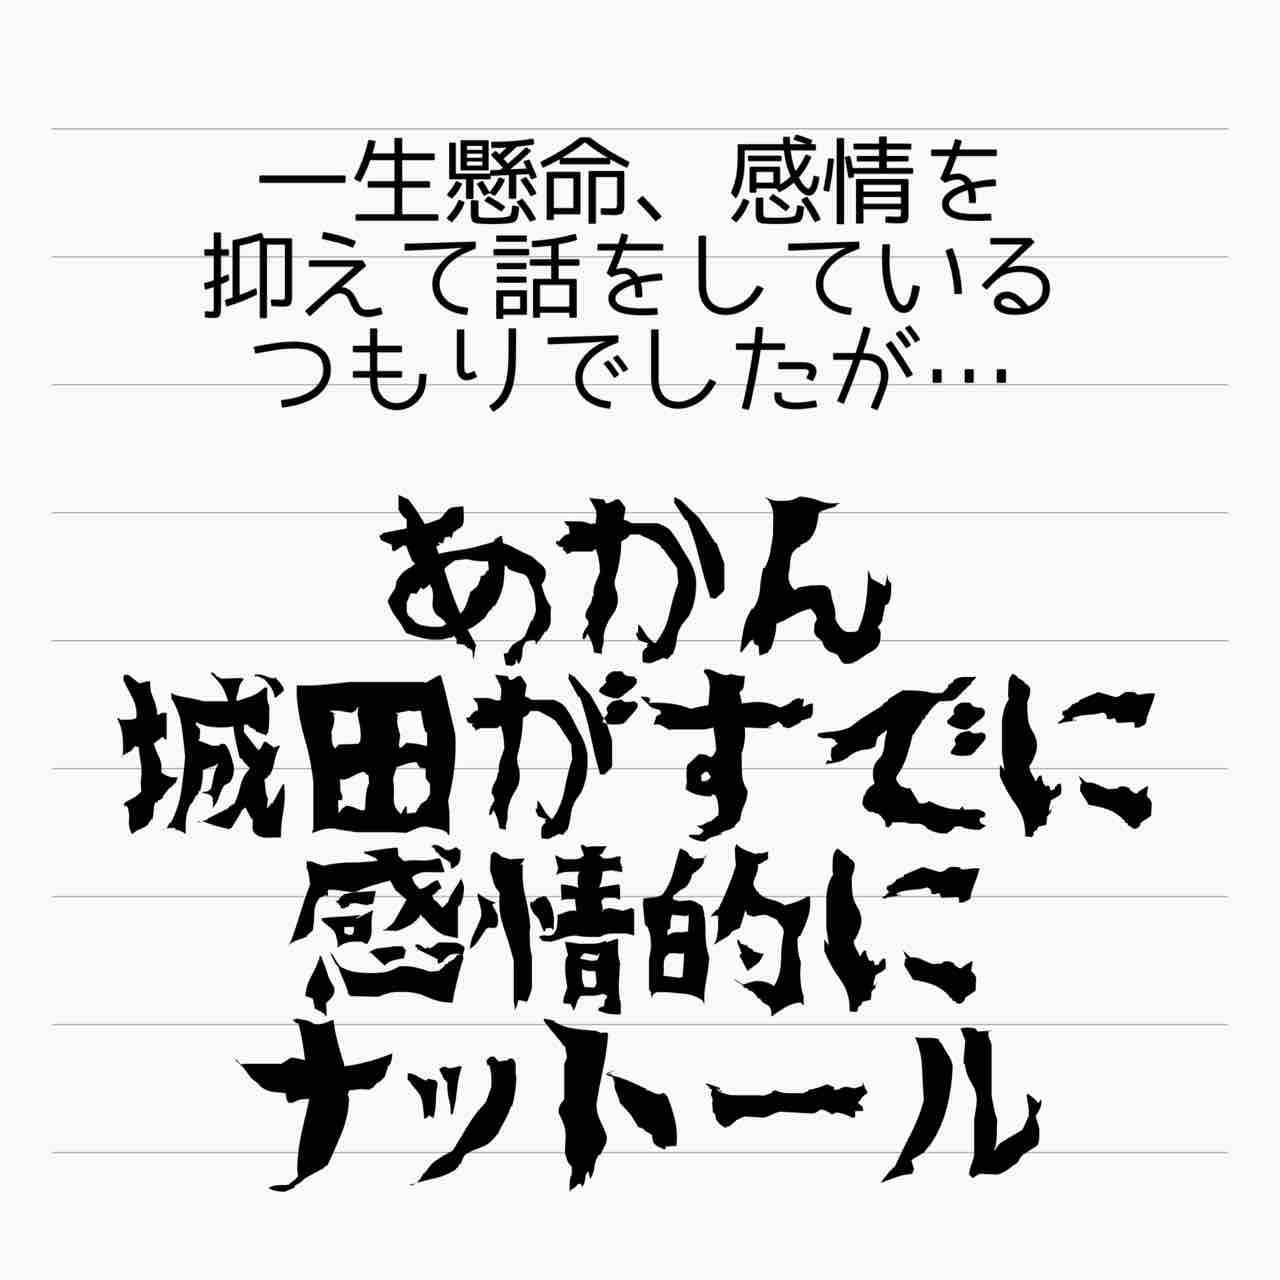 一生懸命、感情を
抑えて話をしている
つもりでしたが…
あかん
城田がすでに
感情的に
ナットール